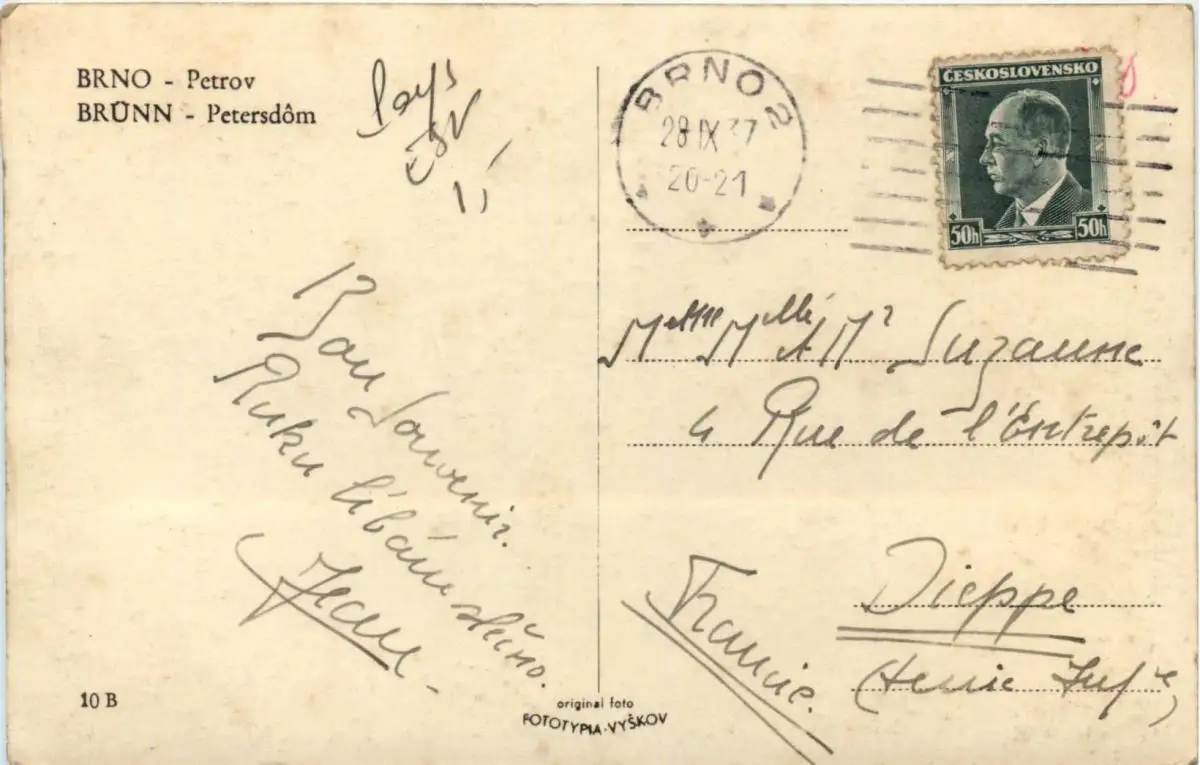 BRNO - Petrov
BRÜNN - Petersdôm
Bon Souvenir.
Ruku líbám slečno.
Jean
10 B
original foto
FOTOTYPIA-VYŠKOV
BRNO 2
28 IX 37
20-21
ČESKOSLOVENSKO
50h 50h
Mme Melle et Mr Suzanne
4 Rue de l'Entrepôt
Dieppe
(Seine Infre)
France.